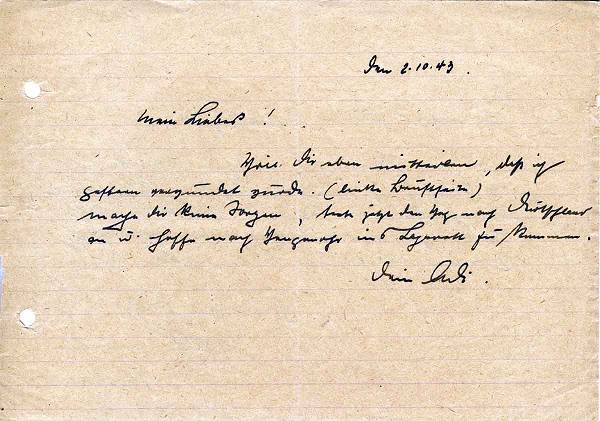 den 2.10.43.
Mein Liebes !
Will Dir eben mitteilen, daß ich
gestern verwundet wurde. (linke Brustseite)
mache Dir keine Sorgen, trete jetzt den Weg nach Deutschland
an u. hoffe nach ins Lazarett zu kommen.
Dein